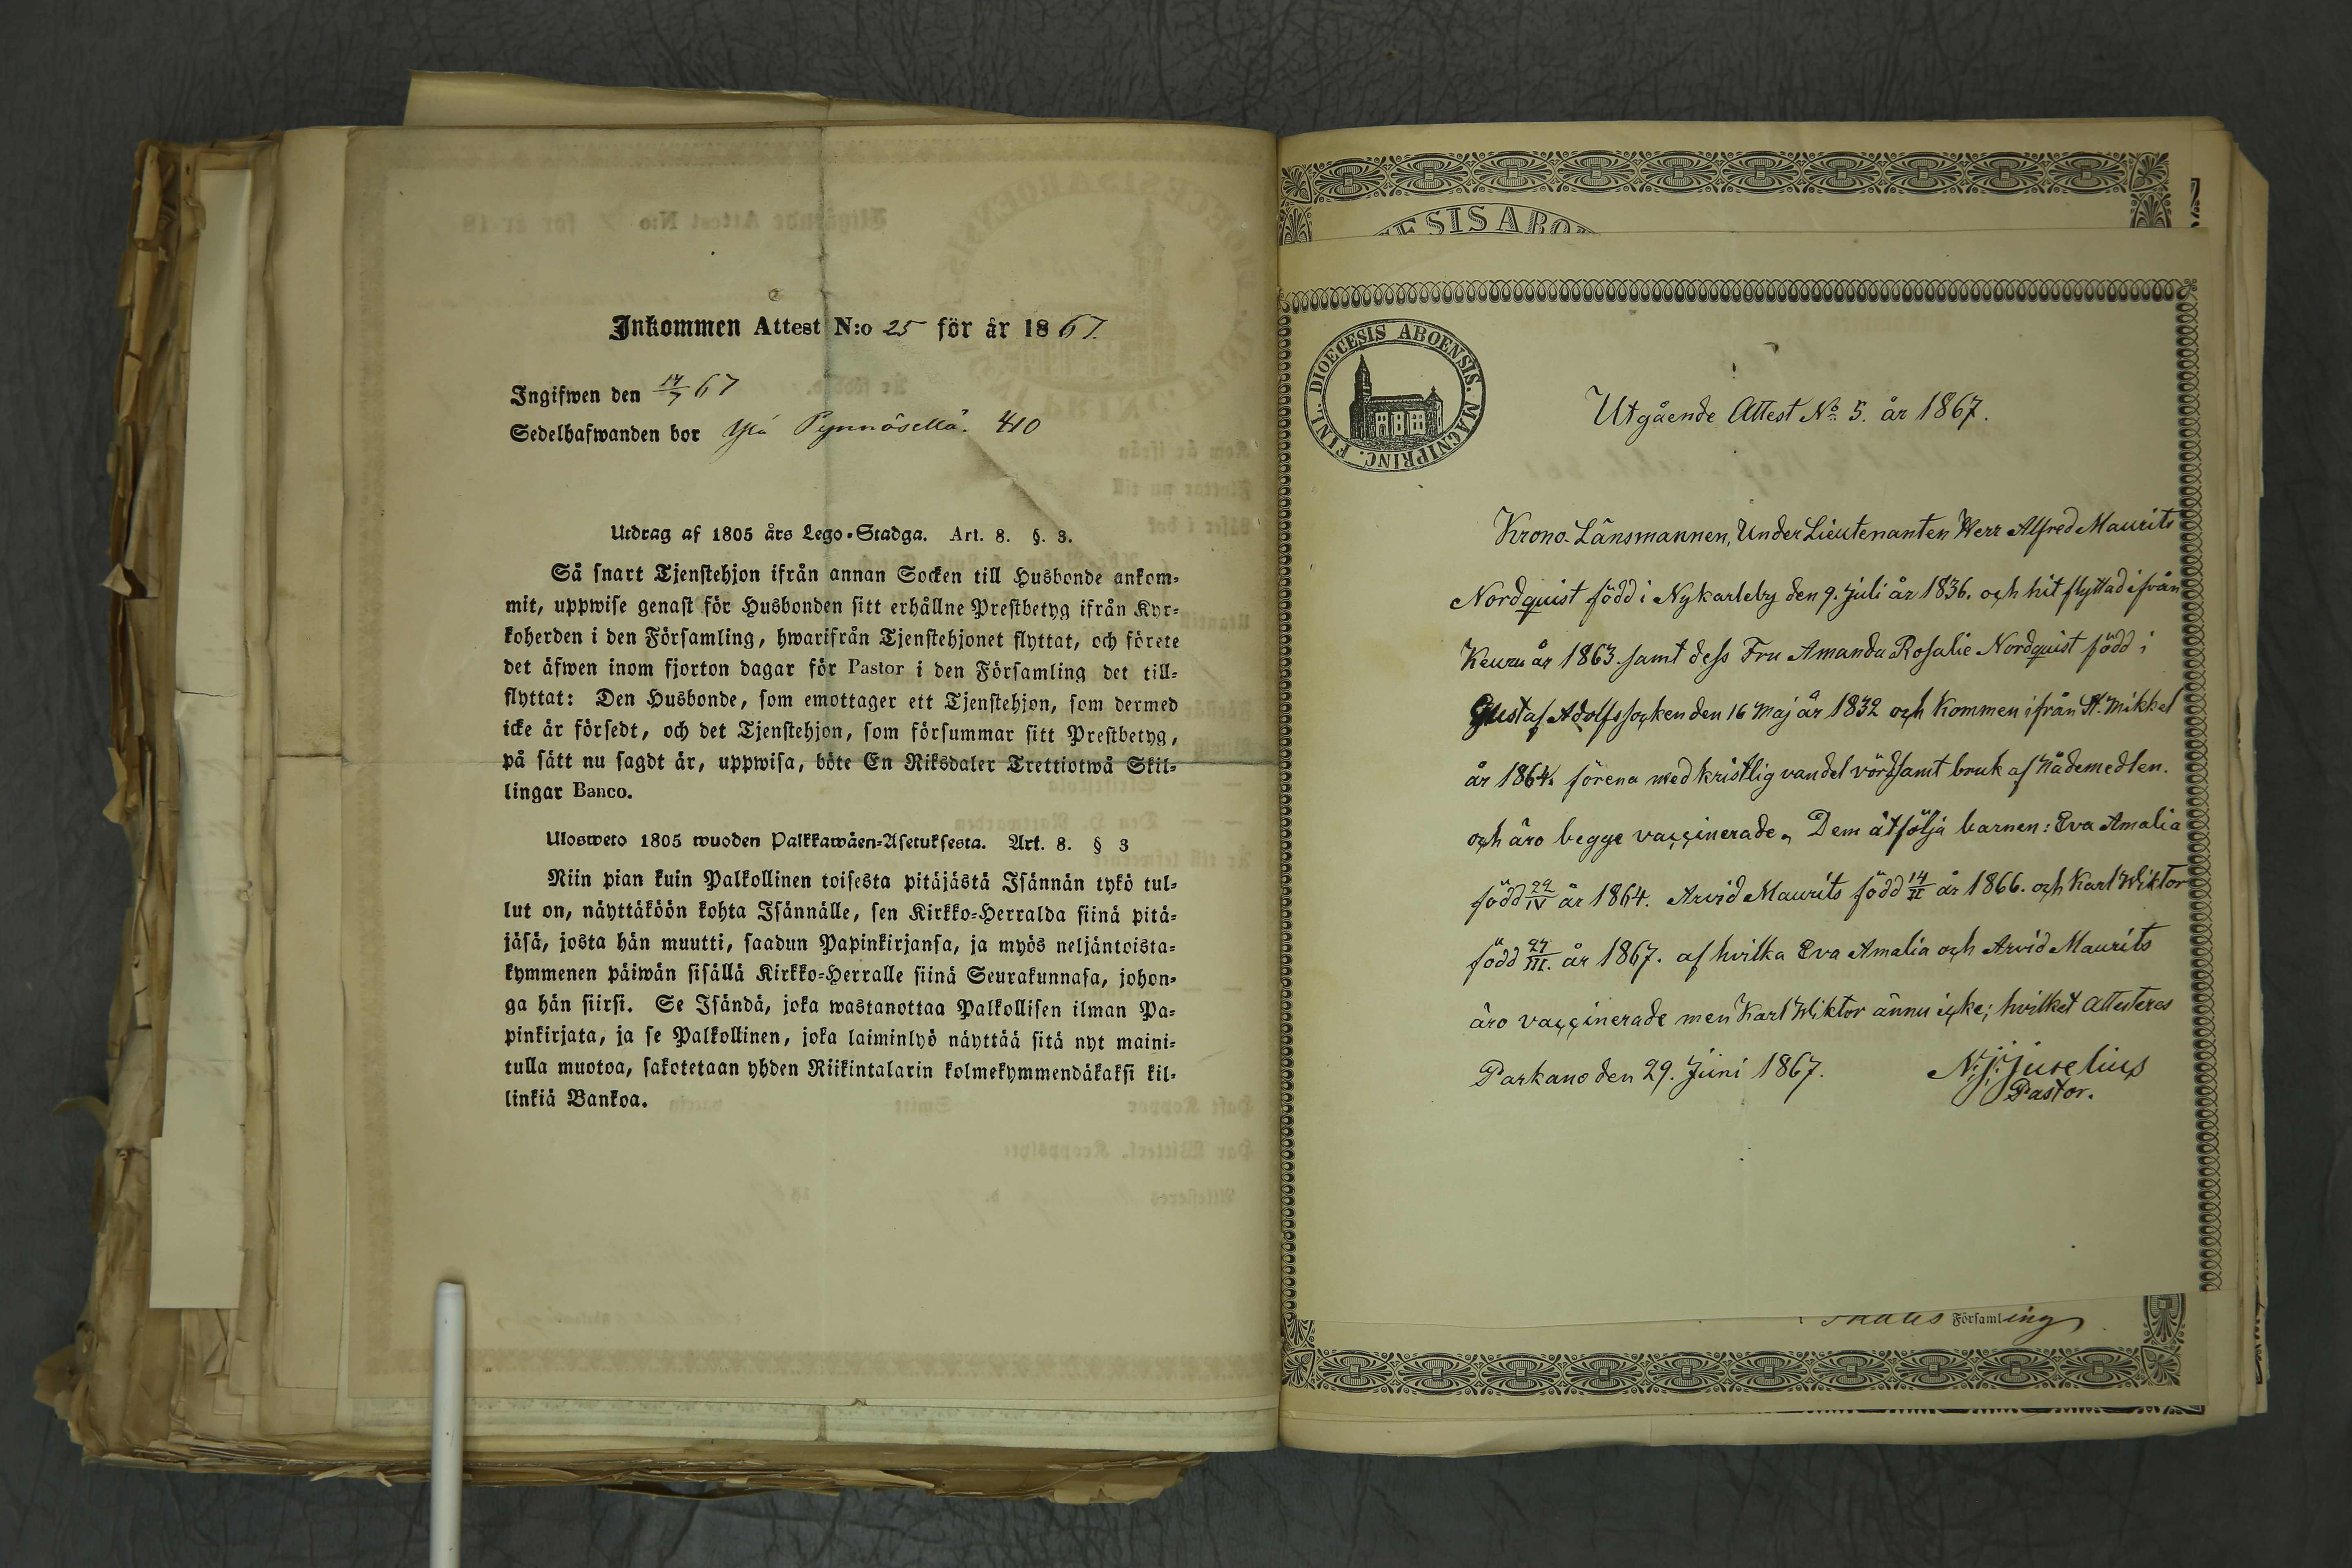 Inkommen Attest N:o 25 för år 1867.
Ingifwen den 14/7 67
Sedelhafwanden bor Pynnösellä. 410
Utdrag af 1805 års Lego-Stadga. Art. 8. §. 3.
Så snart Tjenstehjon ifrån annan Socken till Husbonde ankom-
mit, uppwise genast för Husbonden sitt erhållne Prestbetyg ifrån Kyr-
koherden i den Församling, hwarifrån Tjenstehjonet flyttat, och förete
det äfwen inom fjorton dagar för Pastor i den Församling det till-
flyttat: Den Husbonde, som emottager ett Tjenstehjon, som dermed
icke är försedt, och det Tjenstehjon, som försummar sitt Prestbetyg,
på sätt nu sagdt är, uppwisa, böte En Riksdaler Trettiotwå Skil-
lingar Banco.
Ulosweto 1805 wuoden Palkkawäen-Asetuksesta. Art. 8. § 3
Niin pian kuin Palkollinen toisesta pitäjästä Isännän tykö tul-
lut on, näyttäköön kohta Isännälle, sen Kirkko-Herralda siinä pitä-
jäsä, josta hän muutti, saadun Papinkirjansa, ja myös neljäntoista-
kymmenen päiwän sisällä Kirkko-Herralle siinä Seurakunnasa, johon-
ga hän siirsi. Se Isändä, joka wastanottaa Palkollisen ilman Pa-
pinkirjata, ja se Palkollinen, joka laiminlyö näyttää sitä nyt maini-
tulla muotoa, sakotetaan yhden Riikintalarin kolmekymmendäkaksi kil-
linkiä Bankoa.
ESIS ABO
FINL. DIOECESIS ABOENSIS. MAGNIPRINC.
Utgående Attest No 5. år 1867.
Krono-Länsmannen, UnderLieutenanten Herr Alfred Maurits
Nordquist född i Nykarleby den 9. juli år 1836. och hit flyttad ifrån
Keuru år 1863. samt dess Fru Amanda Rosalie Nordquist född i
Gustaf Adolfs socken den 16 Maj år 1832 och Kommen ifrån St. Mikkel
år 1864. förena med kristlig vandel vördsamt bruk af Nådemedlen.
och äro begge vaccinerade. Dem åtfölja barnen: Eva Amalia
född 29/IV år 1864. Arvid Maurits född 14/II år 1866. och Karl Wiktor
född 27/III. år 1867. af hvilka Eva Amalia och Arvid Maurits
äro vaccinerade men Karl Wiktor ännu icke; hvilket Attesteras
Parkano den 29. Juni 1867. N. J. Juselius
Pastor.
Församling